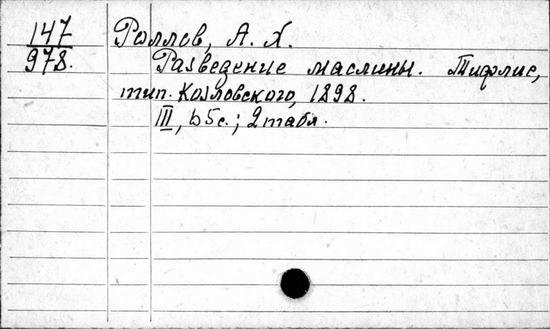 147 Роллов, А. Х.
978. Разведение маслины. Тифлис,
тип. Козловского, 1898.
III, 65с.; 2 табл.